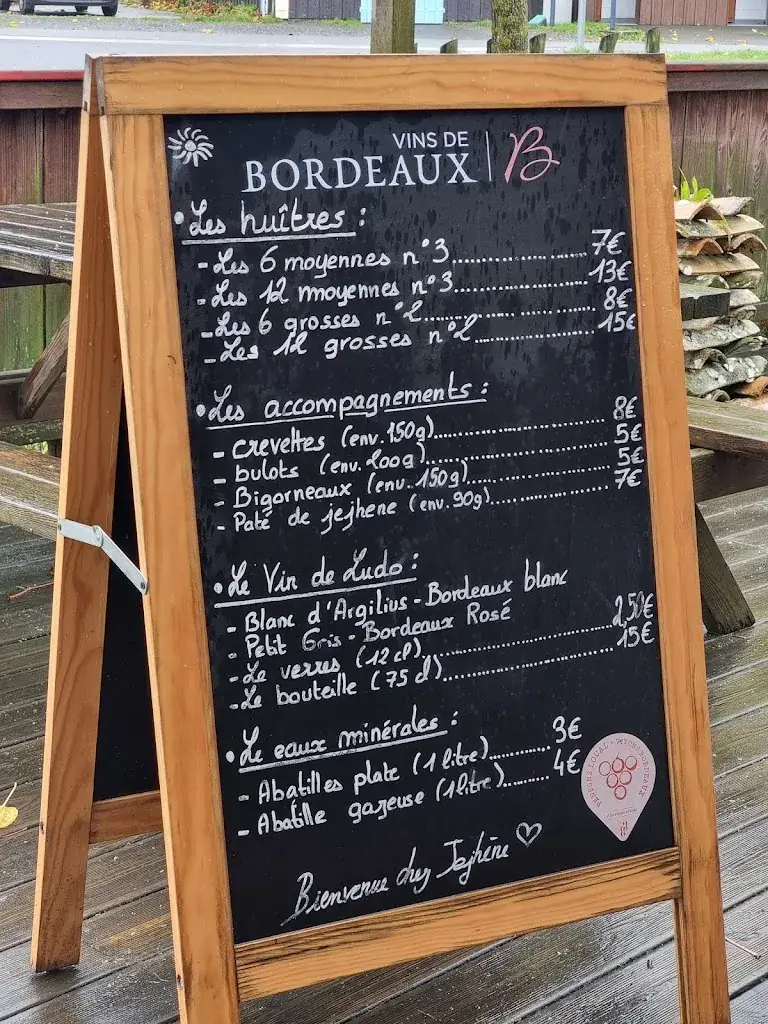 VINS DE
BORDEAUX B
• Les huîtres :
- Les 6 moyennes n°3.................7€
- Les 12 moyennes n°3.................13€
- Les 6 grosses n°2.................8€
- Les 12 grosses n°2.................15€
• Les accompagnements :
- crevettes (env. 150g).................8€
- bulots (env. 200g).................5€
- Bigorneaux (env. 150g).................5€
- Paté de jejhene (env. 90g).................7€
• Le Vin de Ludo :
- Blanc d'Argilius - Bordeaux blanc
- Petit Gris - Bordeaux Rosé
- Le verres (12 cl).................2,50€
- Le bouteille (75 cl).................15€
• Le eaux minérales :
- Abatilles plate (1 litre).........3€
- Abatille gazeuse (1 litre).........4€
Bienvenue chez Jejhène ♡